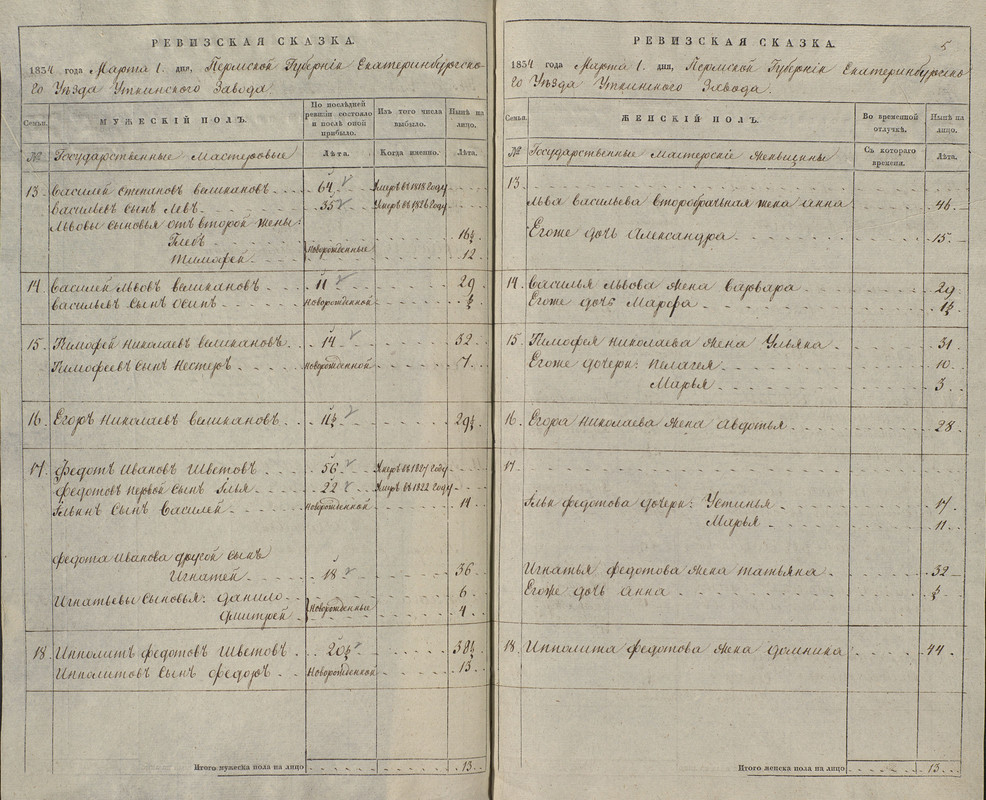 РЕВИЗСКАЯ СКАЗКА.
1834 года Марта 1. дня, Пермской Губернiи Екатеринбургско
го Уѣзда Уткинского Завода.
Семьи.
МУЖЕСКIЙ ПОЛЪ.
По послѣдней ревизiи состояло и послѣ оной прибыло.
Изъ того числа выбыло.
Нынѣ на лицо.
№ Государственные Мастеровые
Лѣта.
Когда именно.
Лѣта.
13 Василей Степановъ Великановъ 64 Умеръ въ 1818 году
Васильевъ сынъ Левъ 35 Умеръ въ 1826 году
Львовы сыновья отъ второй жены:
Глебъ 16½
Новорожденные
Тимофей 12
14. Василей Львовъ Великановъ 11 29
Васильевъ сынъ Осипъ Новорожденной ½
15. Тимофей Николаевъ Великановъ 14 32
Тимофеевъ сынъ Нестеръ Новорожденной 7
16. Егоръ Николаевъ Великановъ 11½ 29½
17. Федотъ Ивановъ Шветовъ 56 Умеръ въ 1827 году
Федотовъ первой сынъ Илья 22 Умеръ въ 1822 году
Ильинъ сынъ Василей Новорожденной 14
Федота Иванова другой сынъ
Игнатей 18 36
Игнатьевы сыновья: Данило 6
Новорожденные
Дмитрей 4
18. Ипполитъ Федотовъ Шветовъ 20½ 38½
Ипполитовъ сынъ Федоръ Новорожденной 13
Итого мужеска пола на лицо 13
5
РЕВИЗСКАЯ СКАЗКА.
1834 года Марта 1. дня, Пермской Губернiи Екатеринбургско
го Уѣзда Уткинского Завода.
Семьи.
ЖЕНСКIЙ ПОЛЪ.
Во временной отлучкѣ.
Нынѣ на лицо.
№ Государственные Мастерскiе Женьщины
Съ котораго времени.
Лѣта.
13
Льва Васильева второбрачная жена Анна 46
Егоже дочь Александра 15
14. Василья Львова жена Варвара 29
Егоже дочь Марфа 1½
15. Тимофея Николаева жена Ульяна 31
Егоже дочери: Пелагея 10
Марья 3
16. Егора Николаева жена Авдотья 28
17.
Ильи Федотова дочери: Устинья 17
Марья 11
Игнатья Федотова жена Татьяна 32
Егоже дочь Анна ½
18. Ипполита Федотова жена Домника 44
Итого женска пола на лицо 13